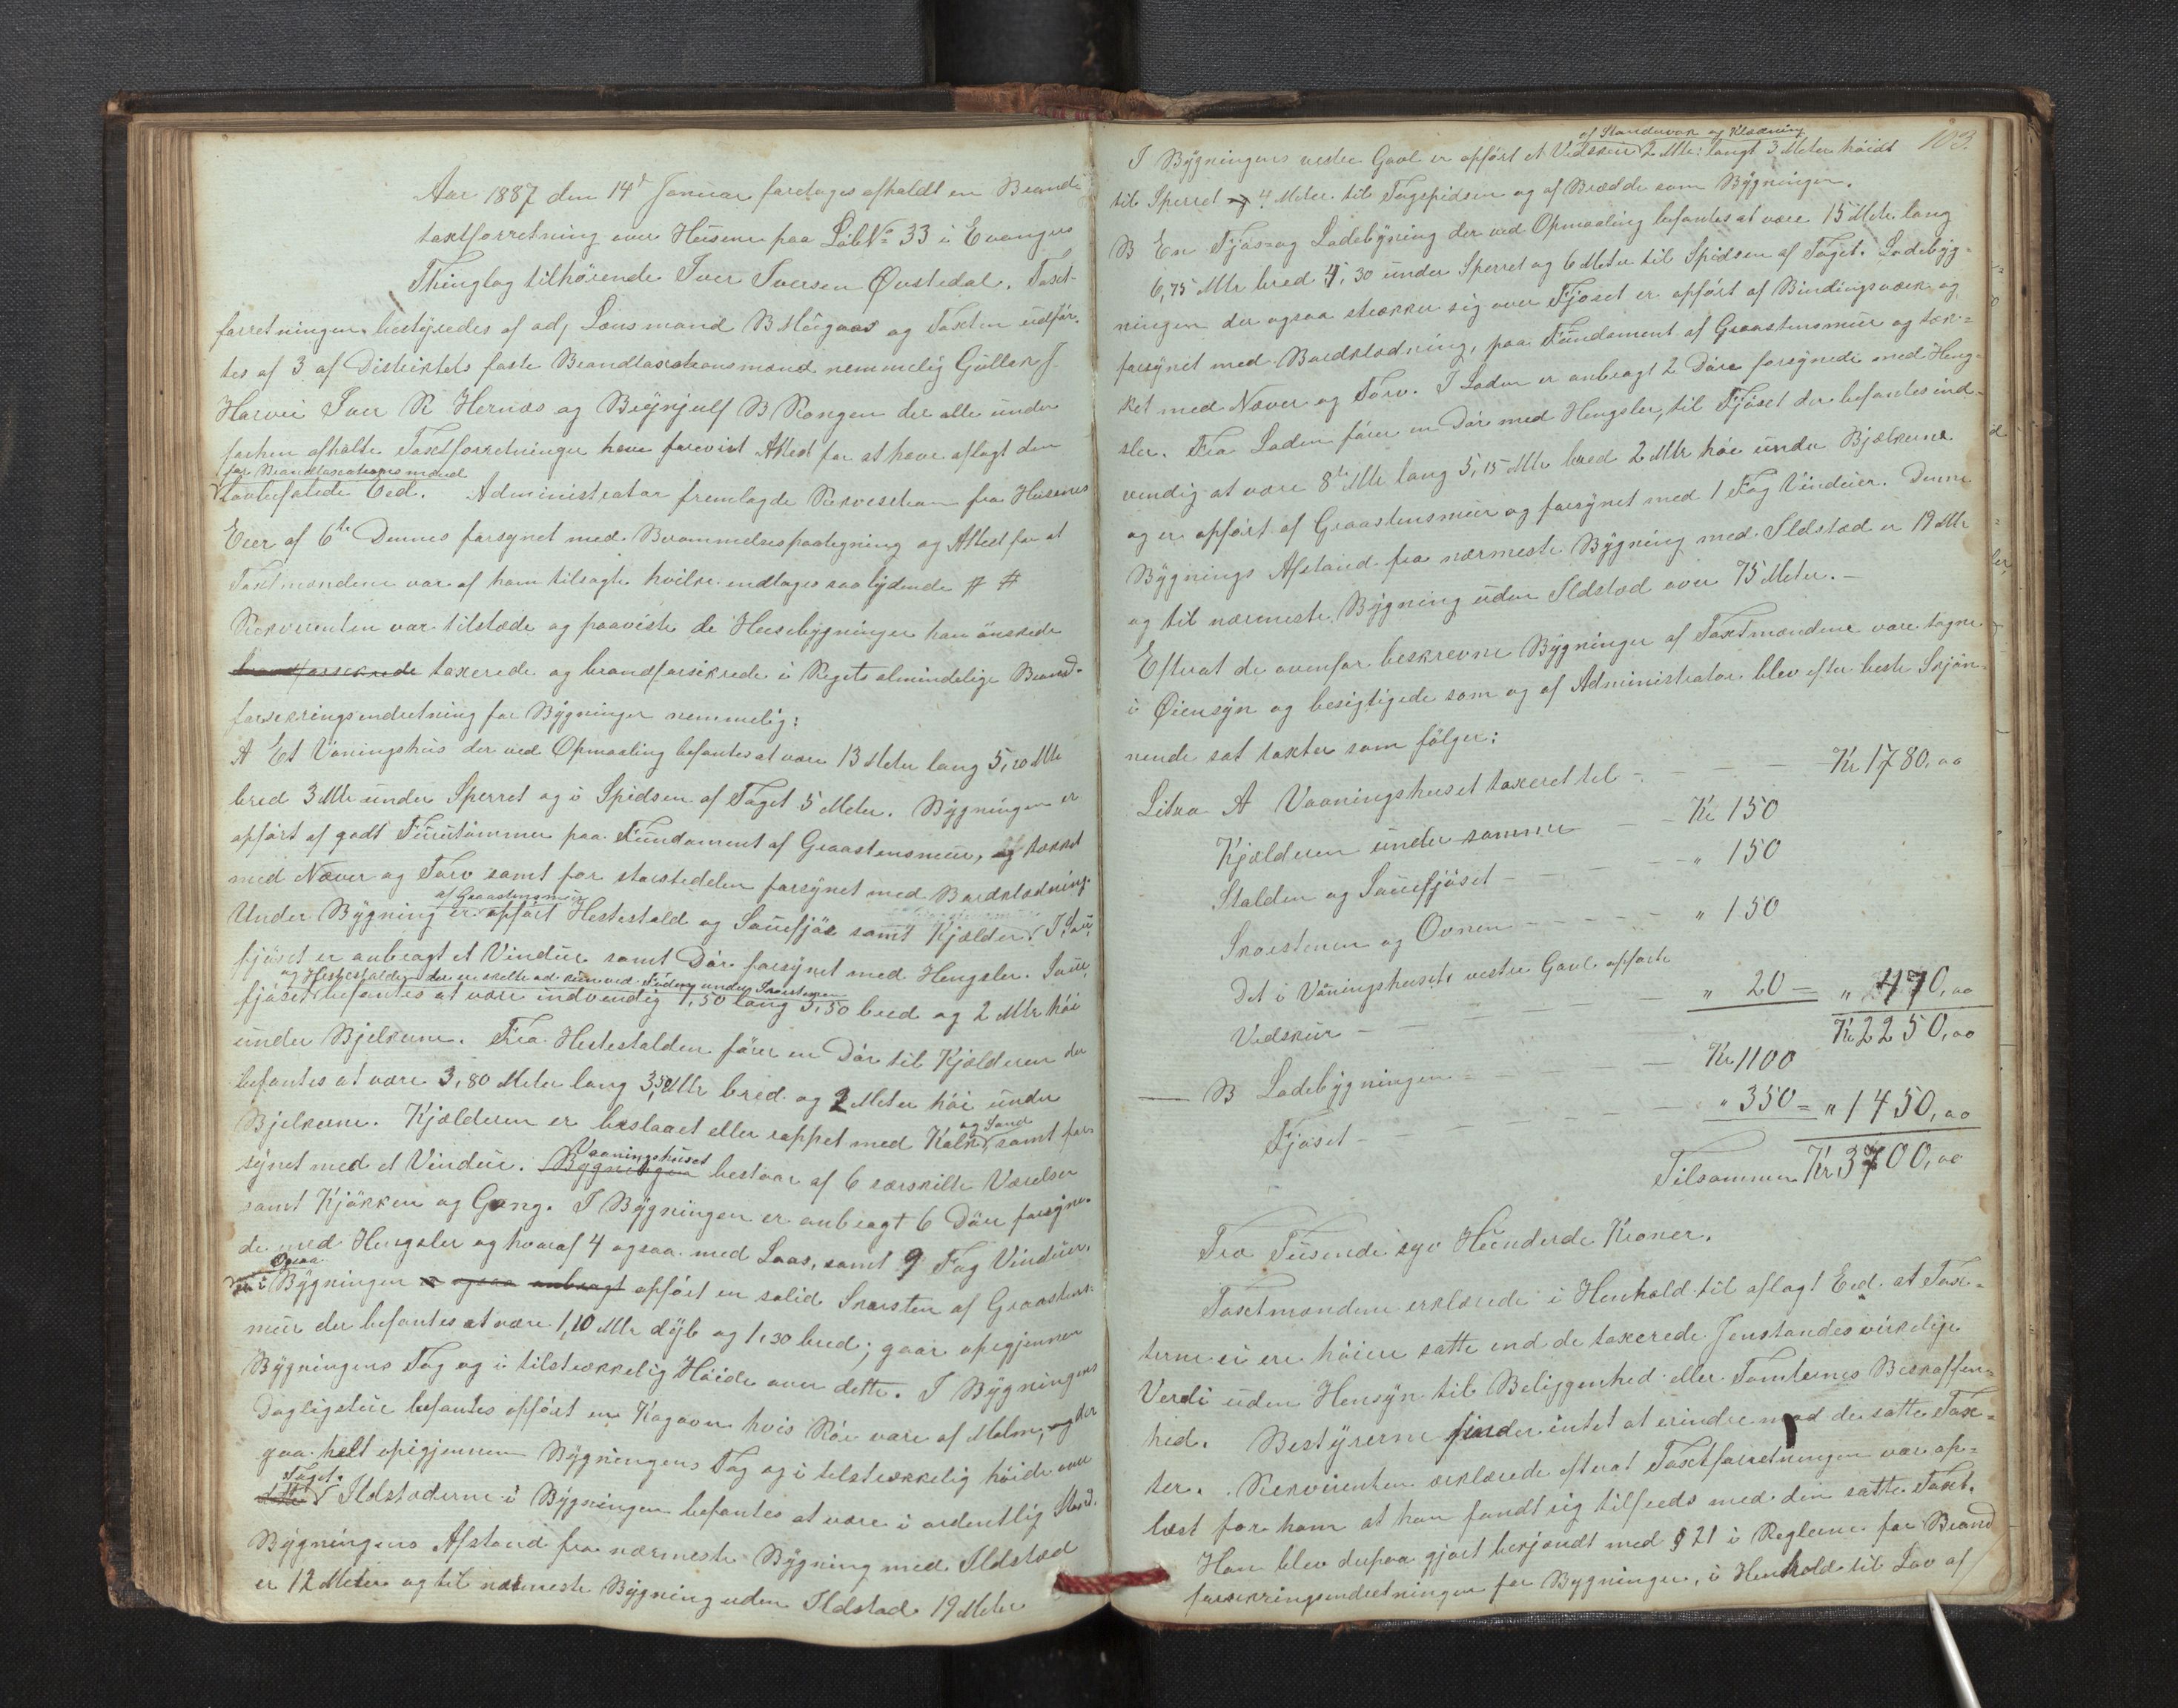 Aar 1887 den 14d Januar foretoges afholdt en Brand-
taxtforretning over Husene paa Løb No 33 i Evanger
Thinglag tilhørende Iver Iversen Øvstedal. Taxt-
forretningen bestyredes af adj. Lensmand B. Mügaas og Taxten udfør-
tes af 3 af Distriktets faste Brandtaxationsmænd nemmelig Gullak J.
Horvei Iver K Hernæs og Brynjulf B Rongen der alle under
forhen afholte Taxtforretninger have forevist Attest for at have aflagt den
for Brandtaxationsmænd
lovbefalede Eed. Administrator fremlagde Rekvisition fra Husenes
Eier af 6te Dennes forsynet med Berammelsespaategning og Attest for at
Taxtmændene var af ham tilsagte hvilke indtages saalydende # #
Rekvirenten var tilstæde og paaviste de Husebygninger han ønskede
brandforsikrede taxerede og brandforsikrede i Rigets almindelige Brand-
forsikringsindretning for Bygninger nemmelig:
A Et Vaaningshus der ved Opmaaling befantes at være 13 Meter lang 5,20 Mtr
bred 3 Mtr under Sperret og i Spidsen af Taget 5 Meter. Bygningen er
opført af godt Furutømmer paa Fundament af Graastensmur, og tækket
med Næver og Torv samt for størstedelen forsynet med Bordklædning.
af Graastensmur
Under Bygning er opført Hestestald og Sauefjøs samt Kjælder. I Saue-
fjøset er anbragt et Vindue samt Dør forsynet med Hengsler. Saue-
og Hestestalden der er skilte ad kun ved Foden under Skorstenen
fjøset befantes at være indvendig 1,50 lang 3,50 bred og 2 Mtr høi
under Bjelkerne. Fra Hestestalden fører en Dør til Kjælderen der
befantes at være 3,80 Meter lang 3,50 Mtr bred og 2 Meter høi under
Bjelkerne. Kjælderen er beslaaet eller rappet med Kalk samt for-
og Sand
synet med et Vindue. Bygningen bestaar af 6 særskilte Værelser
Vaaningshuset
samt Kjøkken og Gang. I Bygningen er anbragt 6 Døre forsyne-
de med Hengsler og hvoraf 4 ogsaa med Laas, samt 9 Fag Vinduer.
Ogsaa
i Bygningen er ogsaa anbragt opført en solid Skorsten af Graastens-
mur der befantes at være 1,10 Mtr dyb og 1,30 bred; gaar opigjennem
Bygningens Tag og i tilstrækkelig Høide over dette. I Bygningens
Dagligstue befantes opført en Kogovn hvis Rør vare af Malm, og der
gaa helt opigjennem Bygningens Tag og i tilstrækkelig høide over
Taget.
dette Ildstæderne i Bygningen befantes at være i ordentlig Stand.
Bygningens Afstand fra nærmeste Bygning med Ildstæd
er 12 Meter og til nærmeste Bygning uden Ildstæd 19 Meter
103.
af Standerværk og Klædning
I Bygningens vestre Gavl er opført et Vedskur 2 Mtr: langt 3 Meter høidt
til Sperret og 4 Meter til Tagspidsen og af Bredde som Bygningen.
B En Fjøs- og Ladebyning der ved Opmaaling befantes at være 15 Metr lang
6,75 Mtr bred 4,30 under Sperret og 6 Meter til Spidsen af Taget. Ladebyg-
ningen der ogsaa strækker sig over Fjøset er opført af Bindingsværk og
forsynet med Bordklædning, paa Fundament af Graastensmur og tæk-
ket med Næver og Torv. I Laden er anbragt 2 Døre forsynede med Heng-
sler. Fra Laden fører en Dør med Hengsler, til Fjøset der befantes ind-
vendig at være 8te Mtr lang 5,15 Mtr bred 2 Mtr høi under Bjælkerne
og er opført af Graastensmur og forsynet med 1 Fag Vinduer. Denne
Bygnings Afstand fra nærmeste Bygning med Ildstæd er 19 Mtr
og til nærmeste Bygning uden Ildstæd over 75 Meter.—
Efterat de ovenfor beskrevne Bygninger af Taxtmændene vare tagne
i Øiensyn og besigtigede som og af Administrator blev efter beste Skjøn-
nende sat taxter som følger:
Litra A Vaaningshuset taxeret til - - - - Kr 1780,00
Kjælderen under samme - - Kr 150
Stalden og Sauefjøset - - - - „ 150
Skorstenen og Ovnen - - - - „ 150
Det i Vaaningshusets vestre Gavl opførte
Vedskur - - - - „ 20 = „ 470,00
Kr 2250,00
B Ladebygningen - - - - Kr 1100
Fjøset - - - - „ 350 = „ 1450,00
Tilsammen Kr 3700,00
Tre Tusende syv Hunderde Kroner.
Taxtmændene erklærede i Henhold til aflagt Eed at Tax-
terne ei ere høiere satte end de taxerede Jenstandes virkelige
Verdi uden Hensyn til Beliggenhed eller Tomternes Beskaffen-
hed. Bestyreren finder intet at erindre mod de satte Tax-
ter. Rekvirenten erklærede efterat Taxtforretningen var op-
læst for ham at han fandt sig tilfreds med den satte Taxt.
Han blev derpaa gjort bekjendt med § 21 i Reglerne for Brand
forsikringsindretningen for Bygninger, i Henhold til Lov af